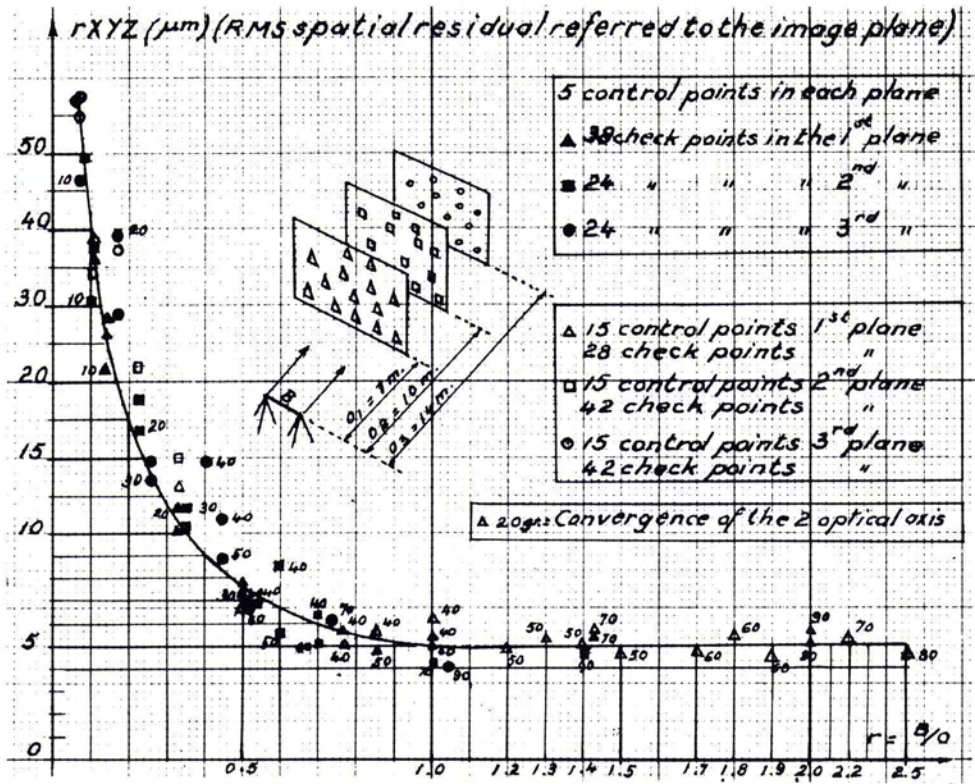 rXYZ (µm) (RMS spatial residual referred to the image plane)
5 control points in each plane
▲ 38 check points in the 1st plane
■ 24 " " " 2nd "
● 24 " " " 3rd "
△ 15 control points 1st plane
28 check points "
□ 15 control points 2nd plane
42 check points "
15 control points 3rd plane
42 check points "
△ 20gr: Convergence of the 2 optical axis
B
D1 = 7 m.
D2 = 10 m.
D3 = 14 m.
50
40
30
20
15
10
5
0
10
20
10
10
20
30
40
20
30
40
50
40
50
40
70
40
40
40
50
40
40
60
70
90
50
50
50
70
70
90
50
60
60
90
80
90
70
80
r = B/D
0.5
1.0
1.2
1.3
1.4
1.5
1.7
1.8
1.9
2.0
2.2
2.5